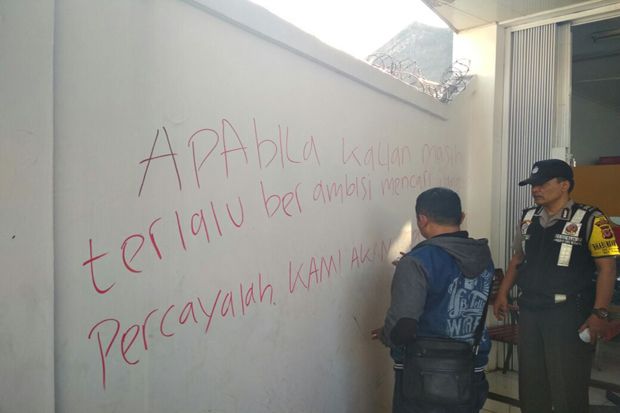 APAbILa kalian masih
terlalu ber ambisi mencari
percayalah. KAMI AKAN